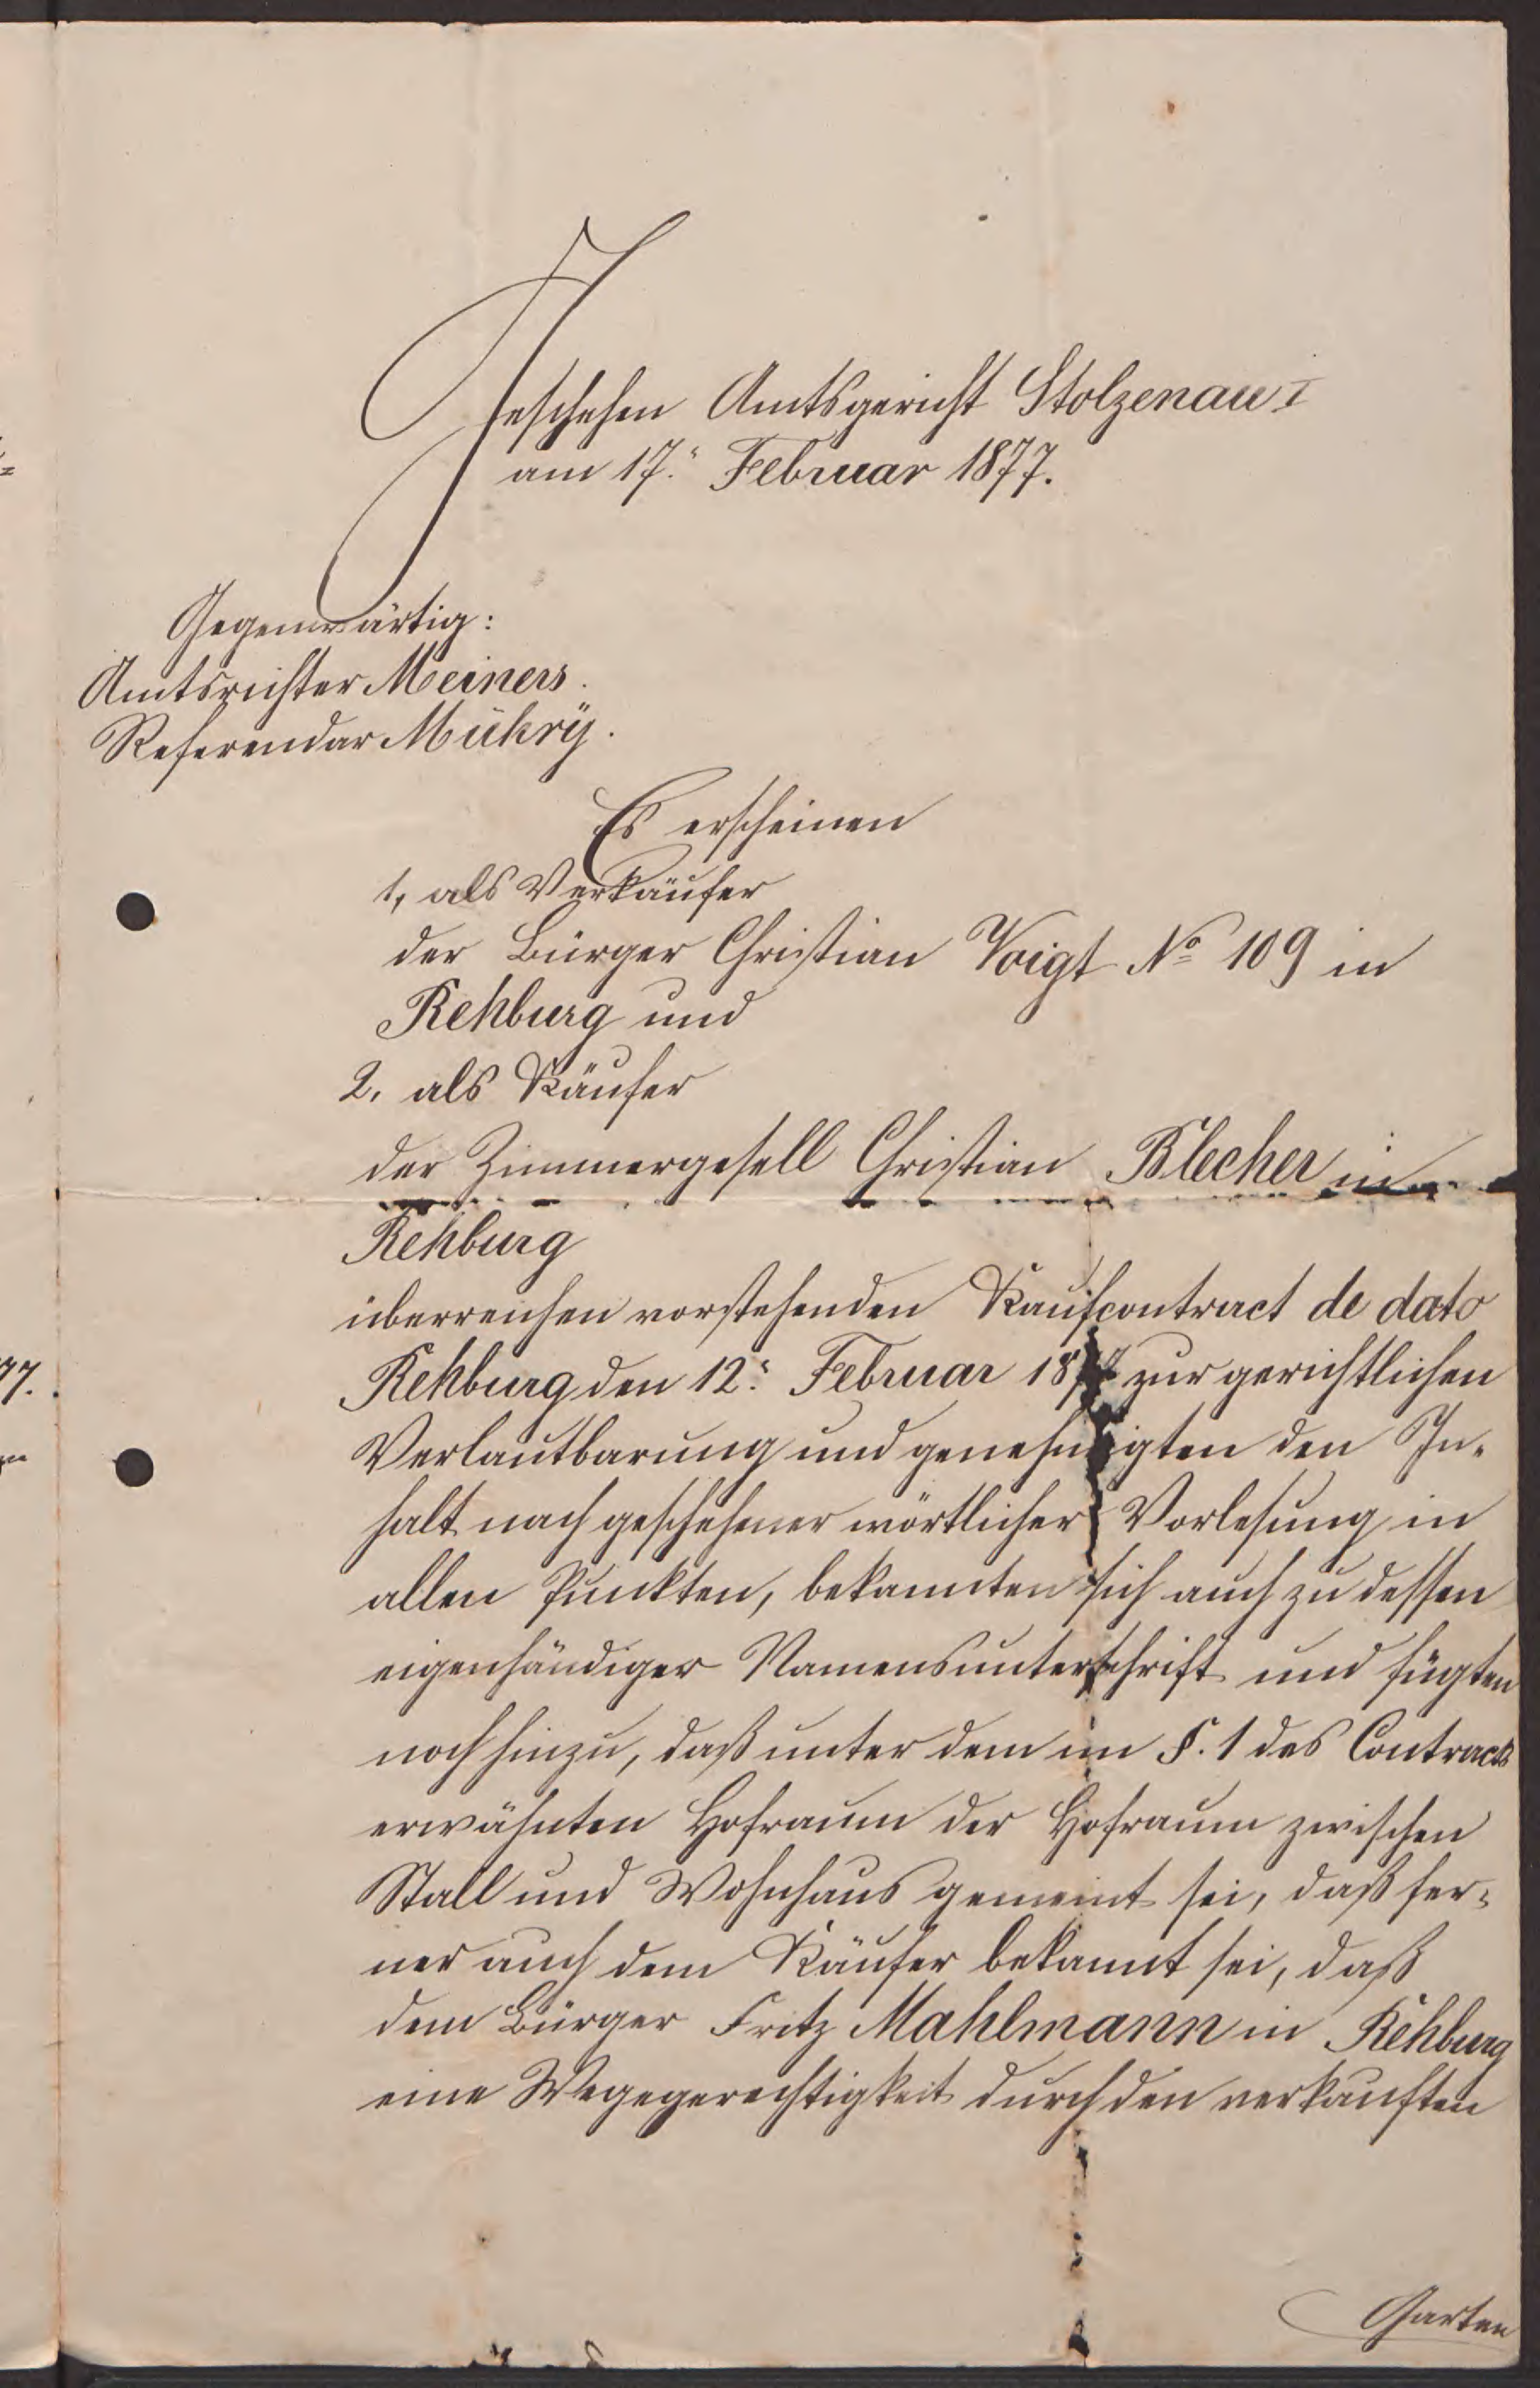 Geschehen Amtsgericht Stolzenau I
am 17. Februar 1877.
Gegenwärtig:
Amtsrichter Meiners.
Referendar Mühry.
Es erscheinen
1, als Verkäufer
der Bürger Christian Voigt No 109 in
Rehburg und
2. als Käufer
der Zimmergesell Christian Blecher in
Rehburg
überreichen vorstehenden Kaufcontract de dato
Rehburg den 12. Februar 1877 zur gerichtlichen
Verlautbarung und genehmigten den In-
halt nach geschehener wörtlicher Vorlesung in
allen Punkten, bekannten sich auch zu dessen
eigenhändiger Namensunterschrift und fügten
noch hinzu, daß unter dem im §. 1 des Contracts
erwähnten Hofraum der Hofraum zwischen
Stall und Wohnhaus gemeint sei, daß fer-
ner auch dem Käufer bekannt sei, daß
dem Bürger Fritz Mahlmann in Rehburg
eine Wegegerechtigkeit durch den verkauften
Garten
77.